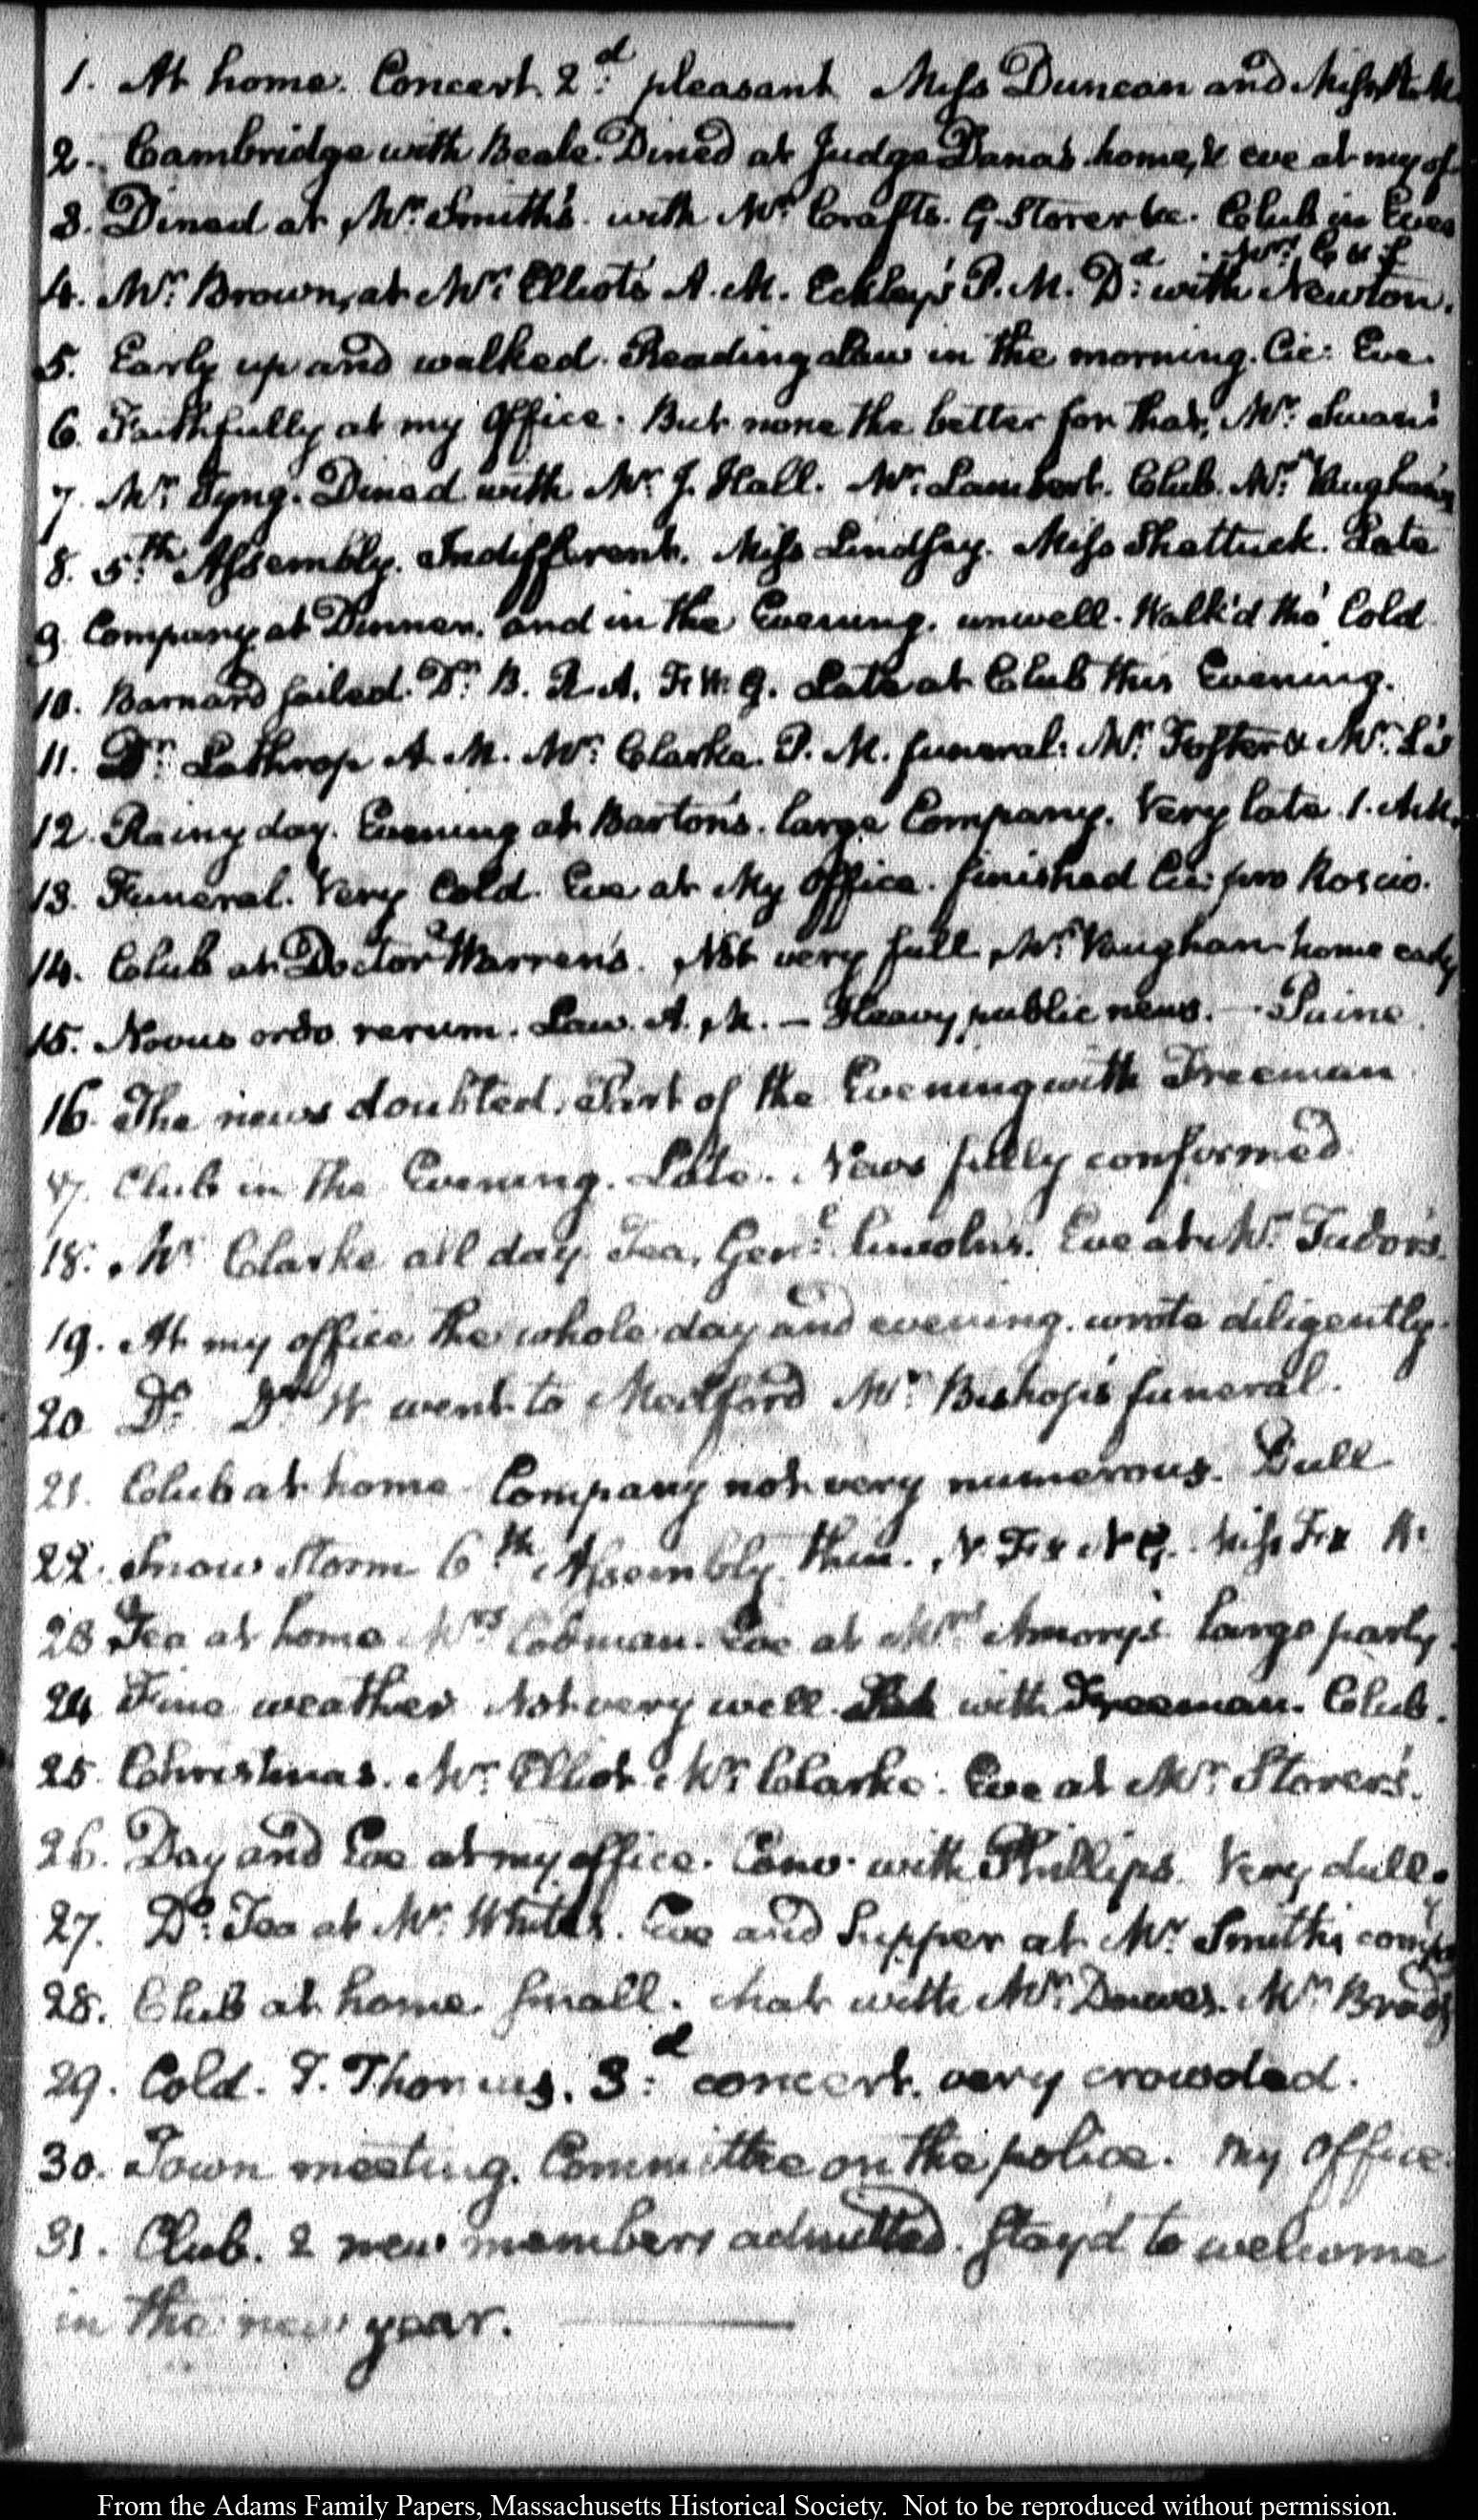 1. At home. Concert. 2.d pleasant Miss Duncan and Miss
2. Cambridge with Beale. Dined at Judge Dana's. home, & eve at my of
3. Dined at Mr. Smith's with Mr. Crafts. G. Storer &c. Club in Eve
4. Mr. Brown, at Mr. Elliots A. M. Eckley's P. M. D:d with Newton.
5. Early up and walked. Reading Law in the morning. Cic: Eve.
6. Faithfully at my Office. But none the better for that, Mr. Swan's
7. Mr. Tyng. Dined with Mr. J. Hall. Mr. Lambert. Club. Mr. Vaughan's
8. 5.th Assembly. Indifferent. Miss Lindsey. Miss Shattuck. Late
9. Company at Dinner. and in the Evening. unwell. Walk'd tho' Cold
10. Barnard sailed. Dr. B. R. A. Late at Club this Evening.
11. Dr. Lathrop A. M. Mr. Clarke. P. M. funeral: Mr. Foster & Mr. L's
12. Rainy day. Evening at Barton's. large Company. Very late 1. A.M.
13. Funeral. Very Cold. Eve at My Office. finished Cic: pro Roscio.
14. Club at Doctor Warren's. Not very full, Mr. Vaughan home early
15. Novus ordo rerum. Law. A. M. — Heavy public news. — Paine
16. The news doubted. Part of the Evening with Freeman
17. Club in the Evening. Late. News fully confirmed
18. Mr. Clarke all day. Tea, Gen:l Lincoln's. Eve at Mr. Tudor's.
19. At my office the whole day and evening. wrote diligently.
20 Do. Dr. W went to Medford Mr. Bishop's funeral.
21. Club at home Company not very numerous. Dull
22. Snow Storm 6th Assembly thin. N. F & N G. Miss
23 Tea at home Mrs. Cobman. Eve at Mrs. Amory's large party.
24 Fine weather Not very well. with Freeman. Club.
25 Christmas. Mr. Elliot Mr. Clarke. Eve at Mr. Storer's.
26. Day and Eve at my office. Conv. with Phillips. Very dull.
27. Do. Tea at Mr. White's. Eve and Supper at Mr. Smith's compy
28. Club at home. small. chat with Mr. Dawes. Mr. Brady
29. Cold. T. Thomas. 3:d concert. very crowded.
30. Town meeting. Committee on the police. My Office.
31. Club. 2 new members admitted. Stay'd to welcome
in the new year.
From the Adams Family Papers, Massachusetts Historical Society. Not to be reproduced without permission.